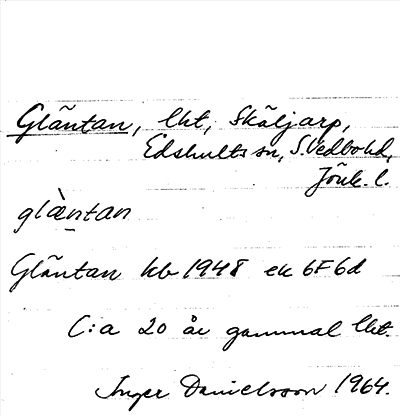 Gläntan, lht, Skäljarp,
Edshults sn, S. Vedbo hd,
Jönk. l.
glæ̀ntan
Gläntan hb 1948 ek 6F6d
C:a 20 år gammal lht.
Inger Danielsson 1964.